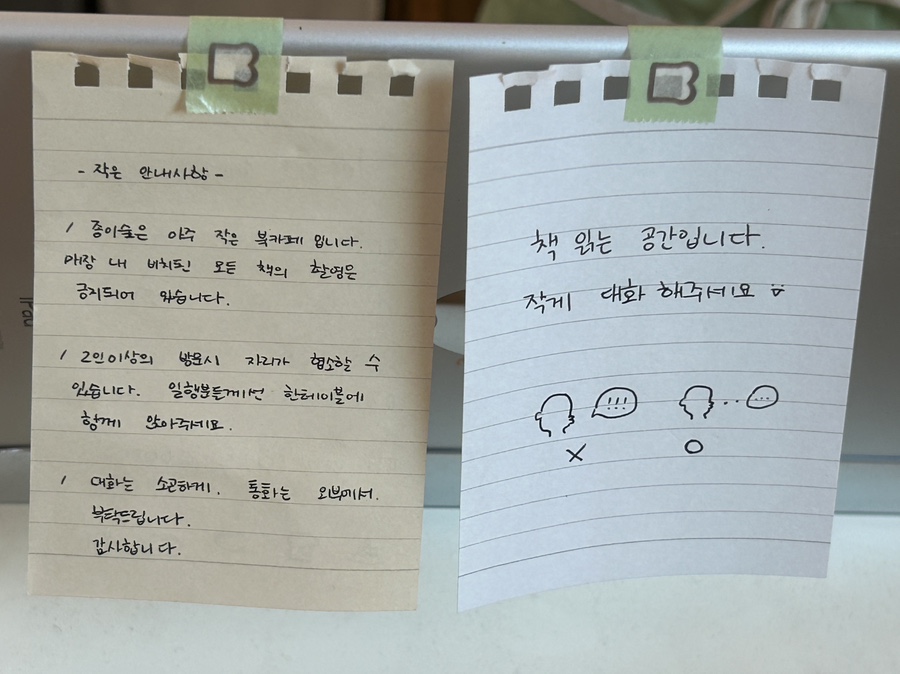 - 작은 안내사항 -
/ 종이숲은 아주 작은 북카페입니다.
매장 내 비치된 모든 책의 촬영은
금지되어 있습니다.
/ 2인이상의 방문시 자리가 협소할 수
있습니다. 일행분들께선 한테이블에
함께 앉아주세요.
/ 대화는 소곤하게. 통화는 외부에서.
부탁드립니다.
감사합니다.
책 읽는 공간입니다.
작게 대화 해주세요
!!! ...
X O
iPad